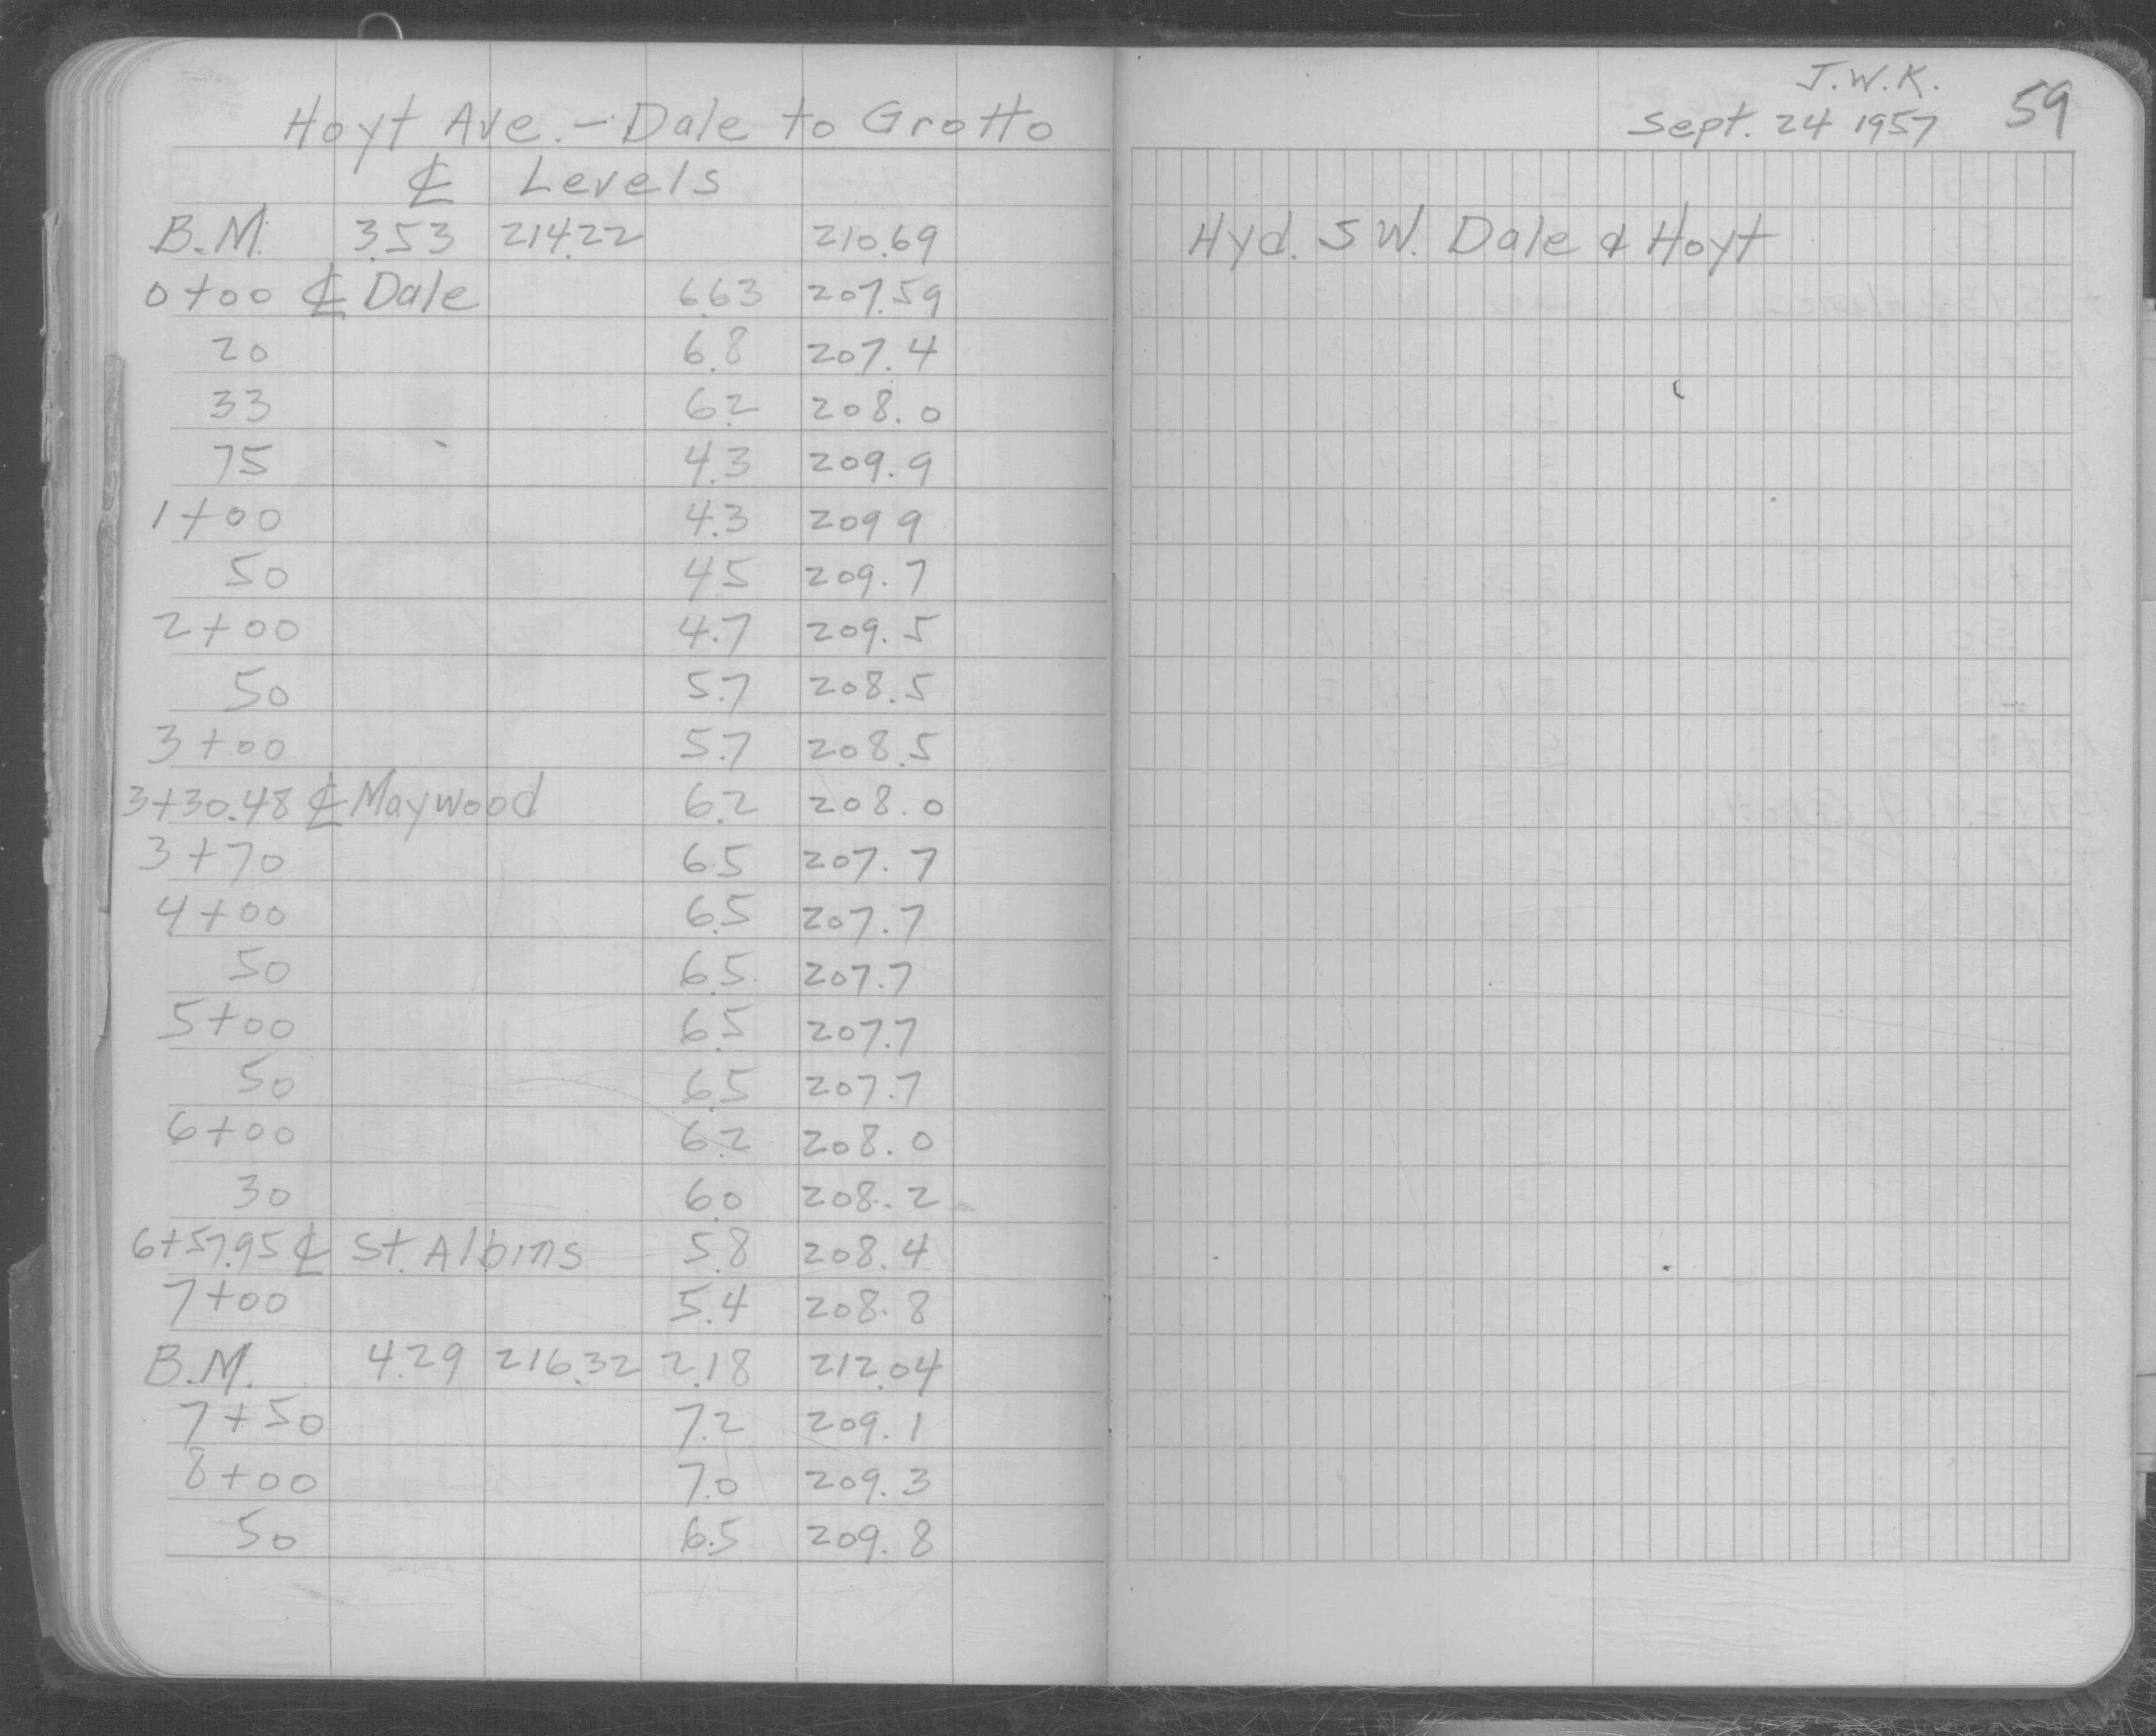 Hoyt Ave. - Dale to Grotto
℄ Levels
B.M. 3.53 214.22 210.69
0+00 ℄ Dale 6.63 207.59
20 6.8 207.4
33 6.2 208.0
75 4.3 209.9
1+00 4.3 209 9
50 4.5 209.7
2+00 4.7 209.5
50 5.7 208.5
3+00 5.7 208.5
3+30.48 ℄ Maywood 6.2 208.0
3+70 6.5 207.7
4+00 6.5 207.7
50 6.5 207.7
5+00 6.5 207.7
50 6.5 207.7
6+00 6.2 208.0
30 6.0 208.2
6+57.95 ℄ St. Albins 5.8 208.4
7+00 5.4 208.8
B.M. 4.29 216.32 2.18 212.04
7+50 7.2 209.1
8+00 7.0 209.3
50 6.5 209.8
J.W.K.
Sept. 24 1957 59
Hyd. S W. Dale & Hoyt